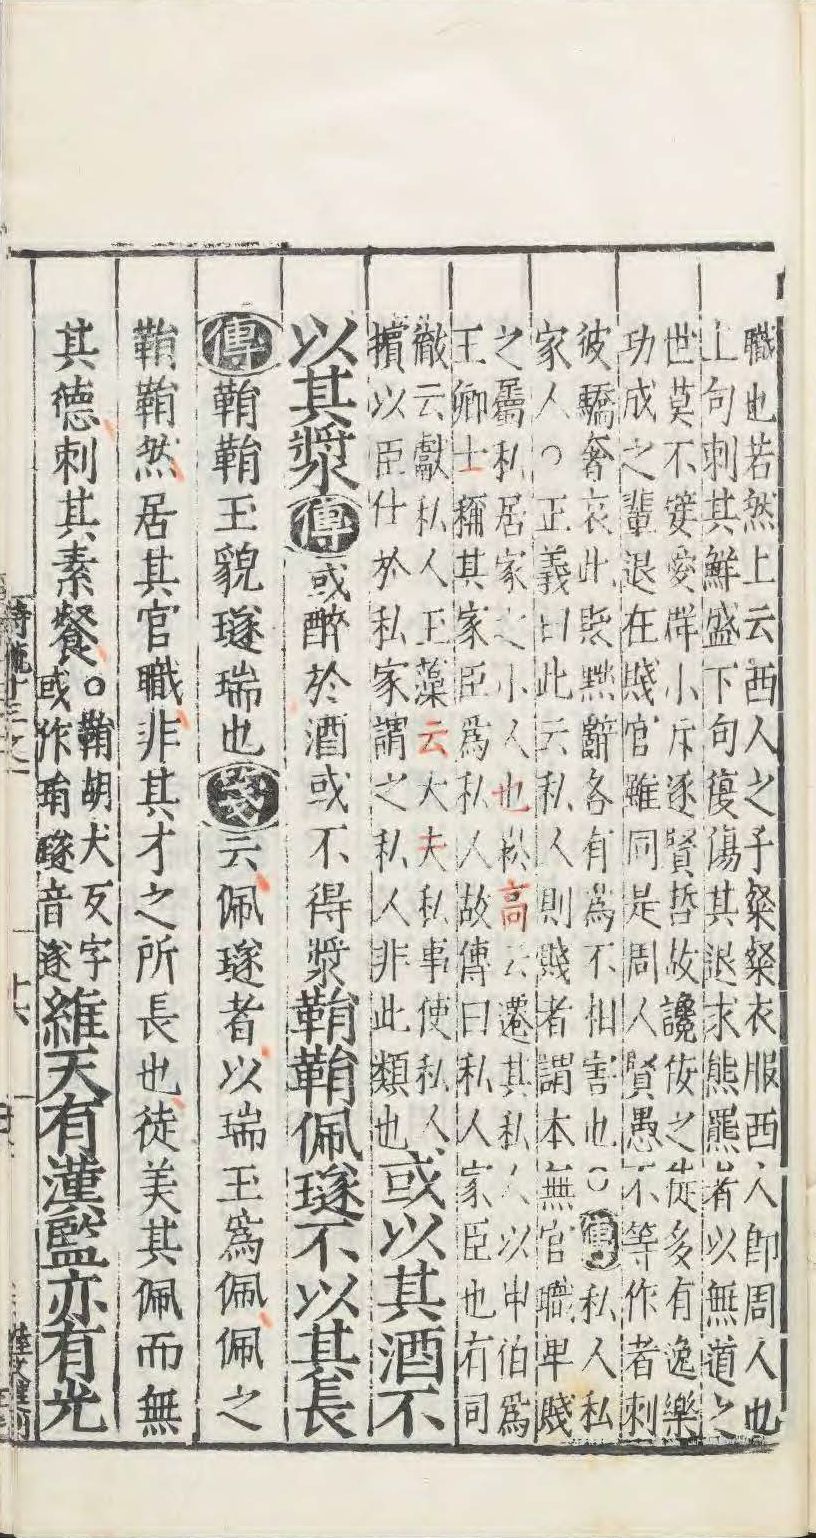 職也若然上云西人之子粲粲衣服西人即周人也
上句刺其鮮盛下句復傷其退求熊羆者以無道之
世莫不寵愛群小斥逐賢哲故讒佞之徒多有逸樂
功成之輩退在賤官雖同是周人賢愚不等作者刺
彼驕奢哀此貶黜辭各有為不相害也○傳私人私
家人○正義曰此云私人則賤者謂本無官職卑賤
之屬私居家之小人也崧高云遷其私人以申伯為
王卿士稱其家臣為私人故傳曰私人家臣也有司
徹云獻私人玉藻云大夫私事使私人
擯以臣仕於私家謂之私人非此類也或以其酒不
以其漿傳或醉於酒或不得漿鞙鞙佩璲不以其長
傳鞙鞙玉貌璲瑞也箋云佩璲者以瑞玉為佩佩之
鞙鞙然居其官職非其才之所長也徒美其佩而無
其德刺其素餐○鞙胡犬反字
或作琄璲音遂維天有漢監亦有光
十六